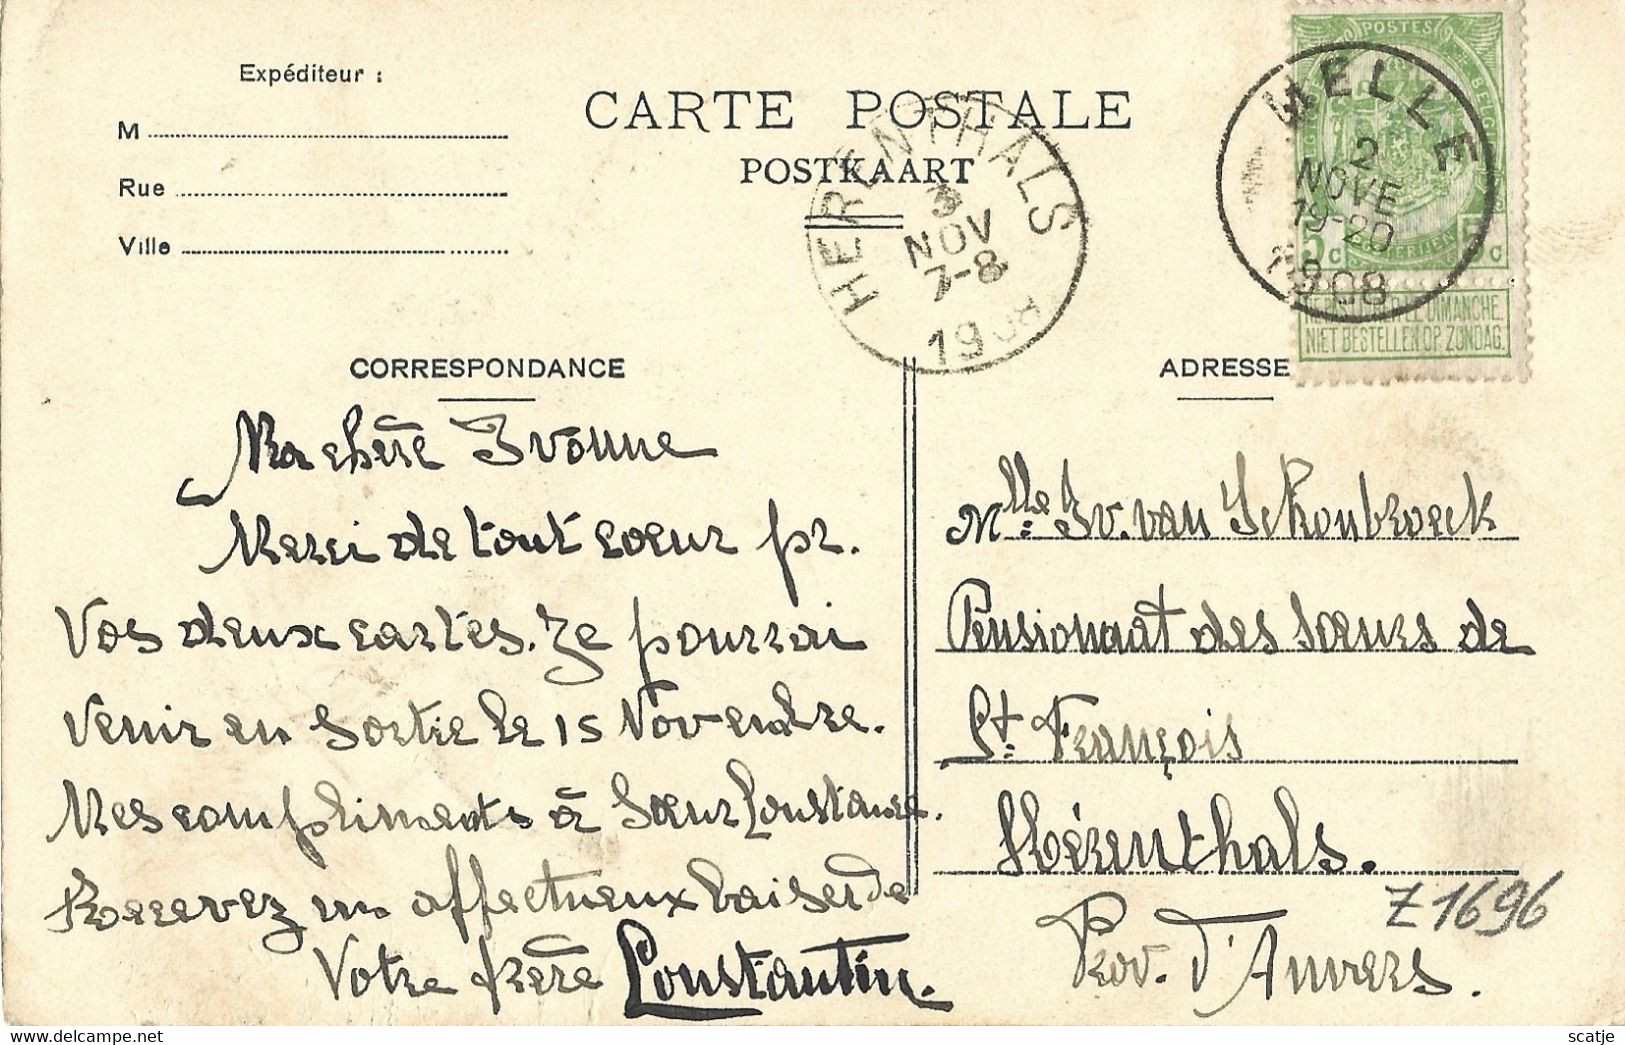 Expéditeur :
M
Rue
Ville
CARTE POSTALE
POSTKAART
HERENTHALS
3
NOV
7-8
1908
POSTES
MELLE
2
NOVE
19-20
1908
5c 5c
NIET BESTELLEN OP ZONDAG.
CORRESPONDANCE
Ma chère Yvonne
Merci de tout cœur pr.
vos deux cartes. Je pourrai
venir en sortie le 15 Novembre.
Mes compliments à Sœur Constance.
Recevez un affectueux baiser de
votre frère Constantin.
ADRESSE
Mlle. Yv. van Schonbroeck
Pensionnat des sœurs de
St. François
Hérenthals.
Prov. d'Anvers.
Z1696
© www.delcampe.net
scatje